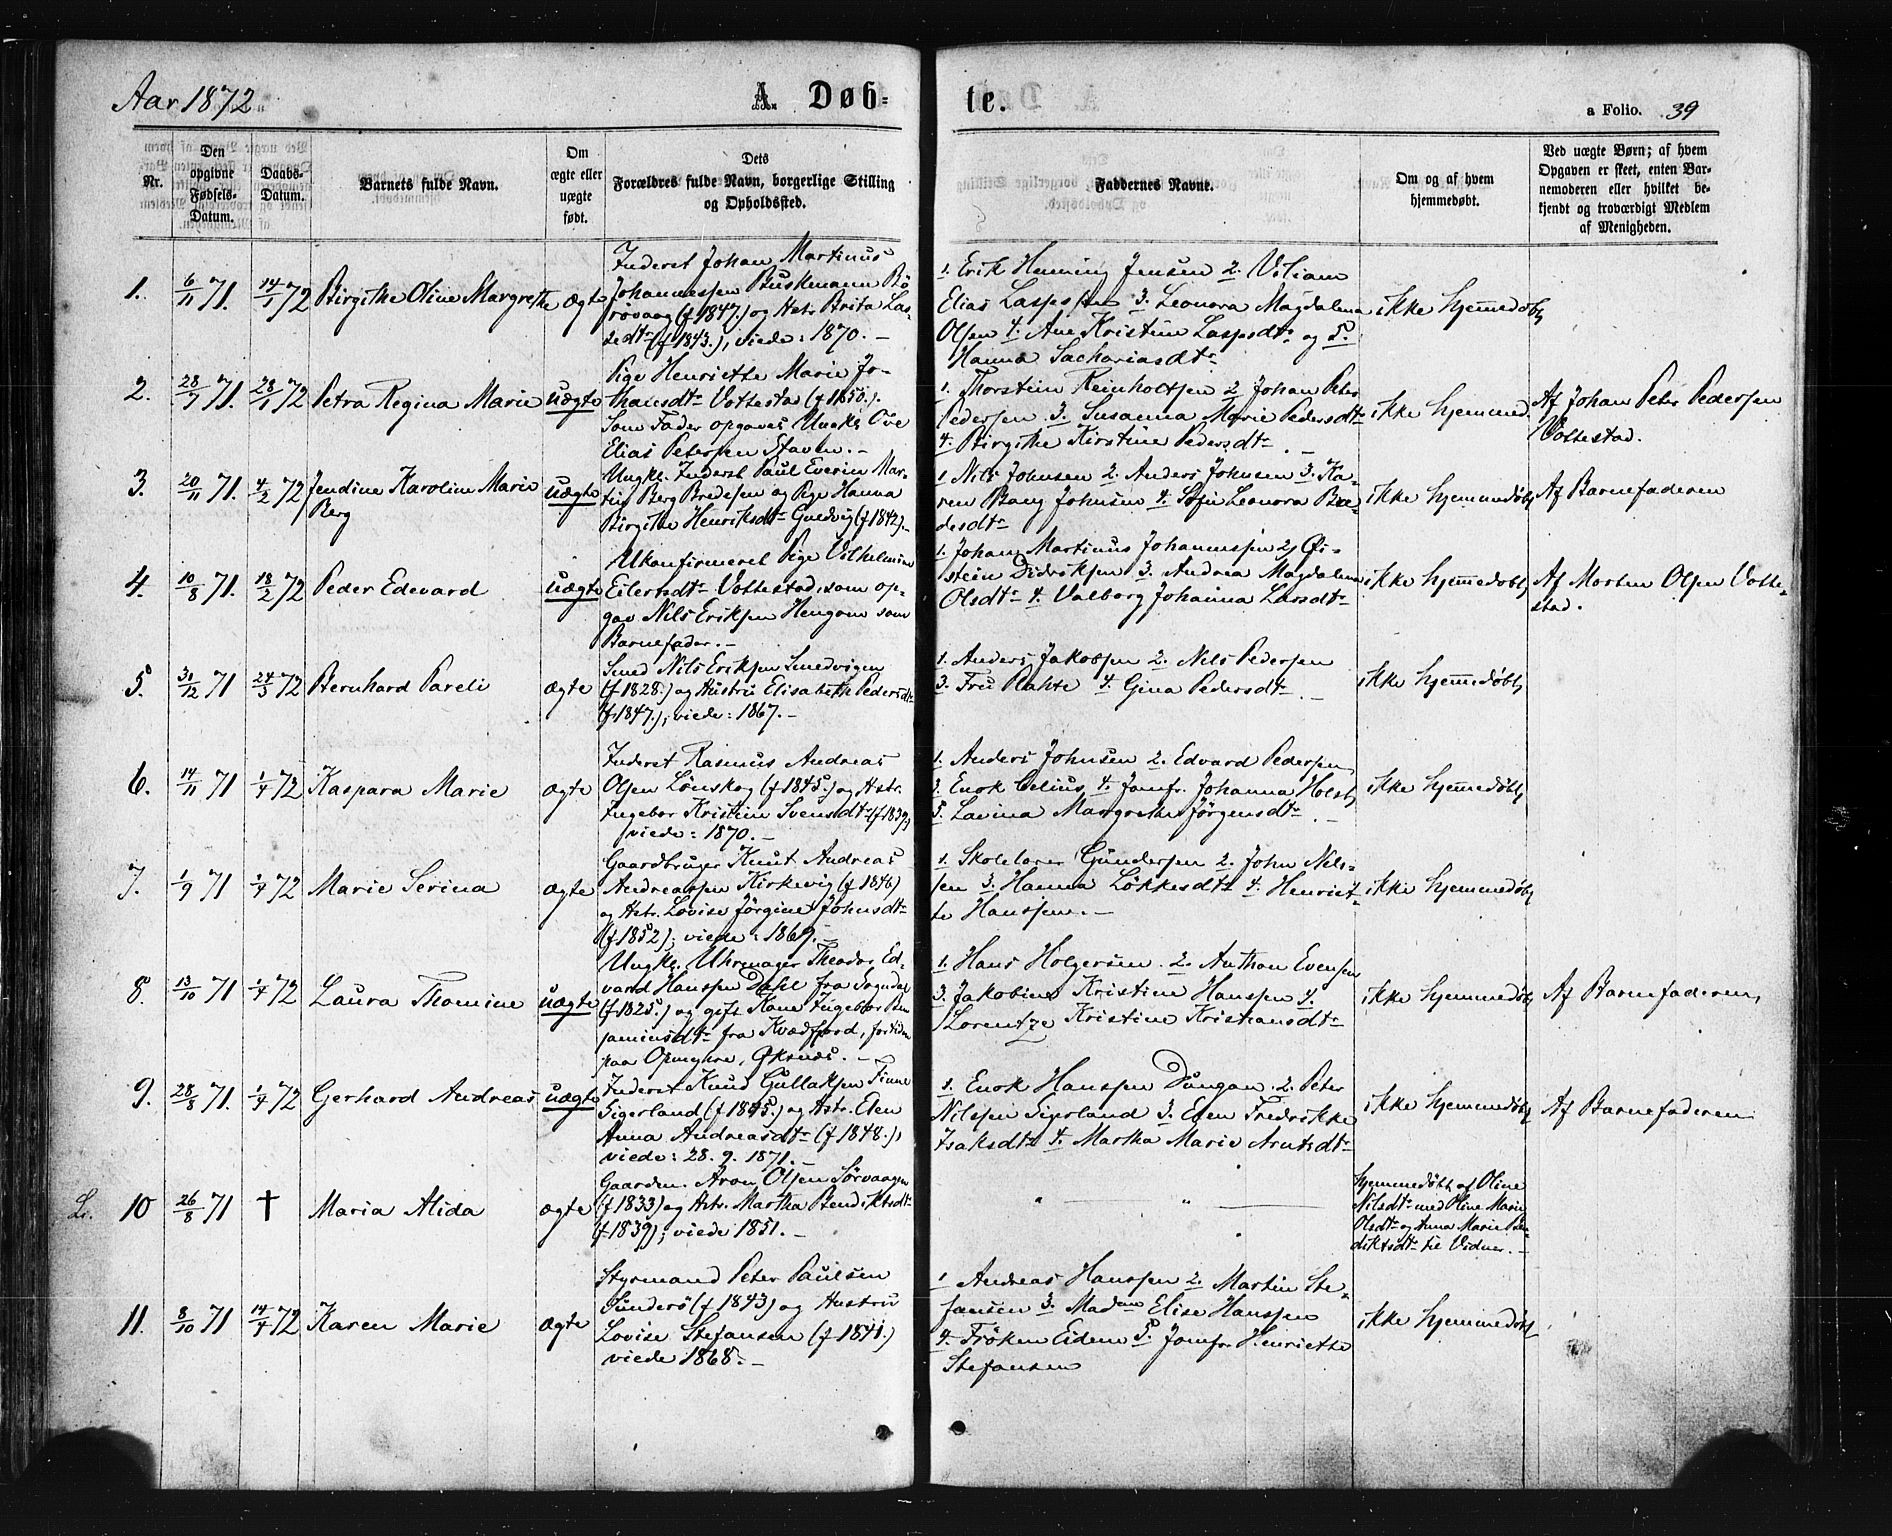 Aar 1872
A. Døb-
te.
a Folio. 39
Nr.
Den opgivne Fødsels-Datum.
Daabs-Datum.
Barnets fulde Navn.
Om ægte eller uægte født.
Dets Forældres fulde Navn, borgerlige Stilling og Opholdssted.
Faddernes Navne.
Om og af hvem hjemmedøbt.
Ved uægte Børn; af hvem Opgaven er skeet, enten Barnemoderen eller hvilket bekjendt og troværdigt Medlem af Menigheden.
1. 6/11 71. 14/1 72 Birgithe Oline Margrethe ægte
Inderst Johan Martinus
Johannessen Buskmann Bö
rövaag (f 1847.) og Hstr Brita Las-
sedtr (f 1843.), viede: 1870. —
1. Erik Henning Jensen 2. Viliam
Elias Lassesen 3. Leonora Magdalena
Olsen 4. Ane Kristine Lassedtr og 5.
Hanna Sachariasdtr
ikke hjemmedøbt
2. 28/7 71. 28/1 72 Petra Regina Marie uægte
Pige Henriette Marie Jo-
hansdtr Vottestad (f 1850.).
Som Fader opgaves Ungkl. Ove
Elias Petersen Staven. —
1. Thorstein Reinholtsen 2. Johan Peter
Pedersen 3. Susanna Marie Pedersdtr
4. Birgithe Kirstine Pedersdtr
ikke hjemmed.
Af Johan Peter Pedersen
Vottestad.
3. 20/11 71. 4/2 72 Jendine Karoline Marie
Berg uægte
Ungkl. Inderst Paul Everin Mar-
tin Berg Bredesen og Pige Hanna
Birgithe Henriksdtr Guldvig (f 1842). —
1 Nils Johnsen 2. Anders Johnsen 3. Ka-
ren Baug Johnsen 4. Sofie Leonora Bre-
desdtr
ikke hjemmedøbt
Af Barnefaderen
4. 10/8 71. 18/2 72 Peder Edevard uægte
Ukonfirmeret Pige Vilhelmine
Eilertsdtr Vottestad, som op-
gav Nils Eriksen Hengom som
Barnefader. —
1. Johan Martinus Johannessen 2. Öi-
stein Didriksen 3. Andrea Magdalena
Olsdtr 4. Valborg Johanna Larsdtr
ikke hjemmedøbt
Af Morten Olsen Votte-
stad.
5. 31/12 71 24/3 72 Bernhard Pareli ægte
Smed Nils Eriksen Smedvigen
(f 1828.) og Hustru Elisabeth Pedersdtr
(f 1847.), viede: 1867. —
1. Anders Jakobsen 2. Nils Pedersen
3. Fru Rahte 4. Gina Pedersdtr
ikke hjemmedøbt
6. 14/11 71 1/4 72 Kaspara Marie ægte
Inderst Rasmus Andreas
Olsen Lönskog (f 1845.) og Hstr.
Ingebor Kristine Svensdtr (f 1839)
viede: 1870. —
1. Anders Johnsen 2. Edvard Pedersen
3. Enok Celius 4. Jomfr. Johanna Holst
5. Lavina Margrethe Jörgensdtr
ikke hjemmedøbt
7. 1/9 71 1/4 72 Marie Serina ægte
Gaardbruger Knut Andreas
Andreassen Kirkevig (f 1846)
og Hstr. Lovise Jörgine Johnsdtr
(f 1852); viede: 1869. —
1. Skolelærer Gundersen 2. John Nils-
sen 3. Hanna Lökkesdtr 4. Henriet-
te Hanssen. —
ikke hjemmedøbt
8. 13/10 71 1/4 72 Laura Thomine uægte
Ungkl. Uhrmager Theodor Ed-
vard Hanssen Dahl fra Sogndal
(f 1825.) og gift Kone Ingebor Ben
jaminsdtr fra Kvædfjord, fortiden
paa Opmyhre, Öksnæs. —
1. Hans Holgersen 2. Anthon Evensen
3. Jakobine Kristine Hanssen 4.
Lorentze Kristine Kristiansdtr
ikke hjemmedøbt
Af Barnefaderen,
9. 28/8 71. 1/4 72 Gerhard Andreas uægte
Inderst Knud Gullaksen Finne
Sigerland (f 1845.) og Hstr. Elen
Anna Andreasdtr (f 1848.),
viede: 28. 9. 1871. —
1. Enok Hanssen Dungan 2. Peter
Nilssen Sigerland 3. Elen Fredrikke
Isaksdtr 4. Martha Marie Arntsdtr
ikke hjemmedøbt
Af Barnefaderen
10 26/8 71 † Maria Alida ægte
Gaardm. Aron Olsen Sörvaagen
(f 1833) og Hstr. Martha Bendiktsdtr
(f 1839); viede 1851. —
" — "
Hjemmedøbt af Oline
Nilsdtr med Oline Marie
Olsdtr og Anna Marie Ben-
diktsdtr til Vidner. —
11. 8/10 71 14/4 72 Karen Marie ægte
Styrmand Peter Paulsen
Sunderö (f 1843) og Hustru
Lovise Stefansen (f 1841.)
viede 1868. —
1 Andreas Hanssen 2. Martin Ste-
fansen 3. Madam Elise Hanssen
4. Fröken Eidem 5. Jomfr. Henriette
Stefansen
ikke hjemmedøbt